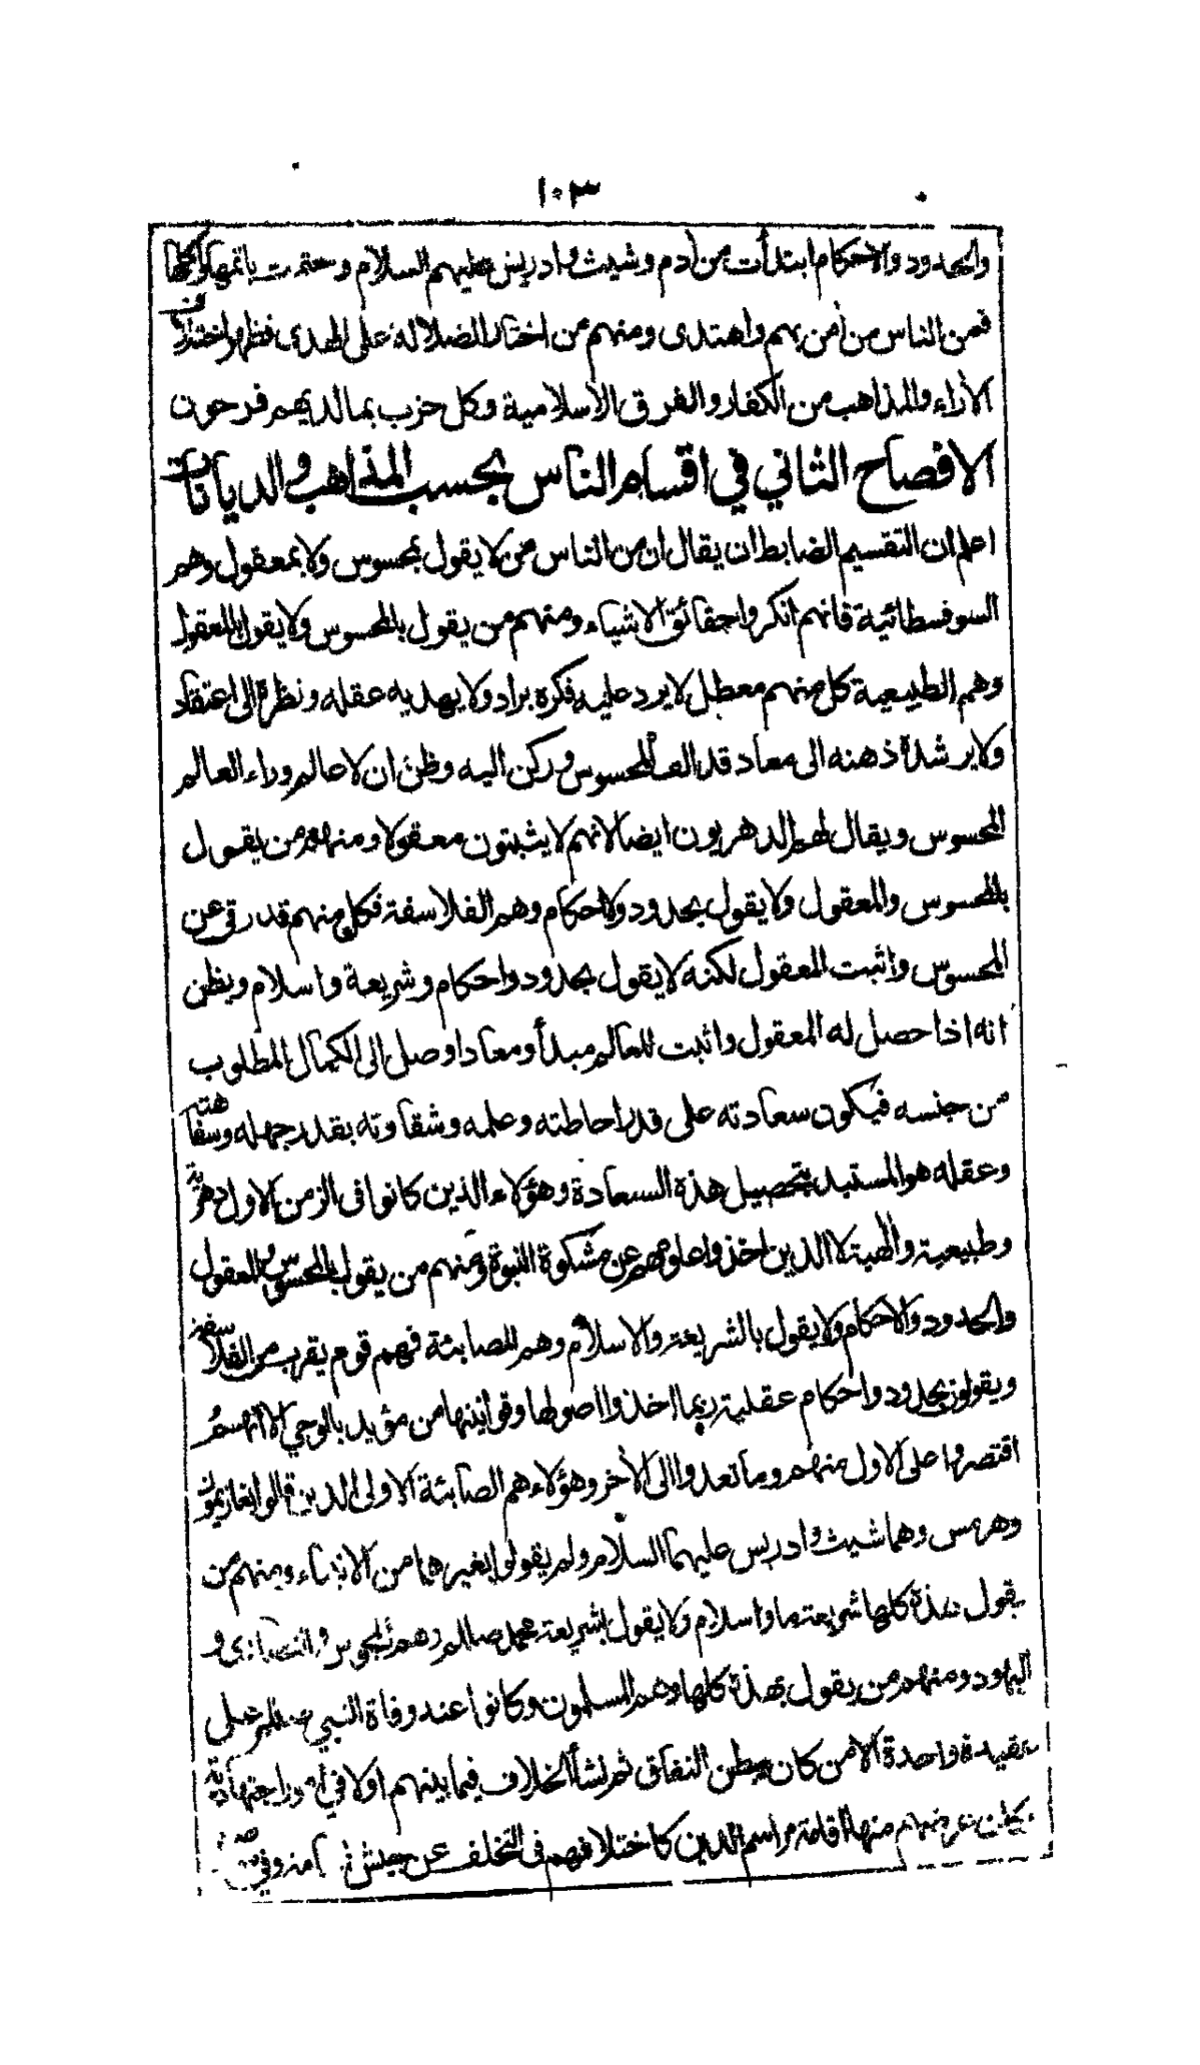 ١٠٣
والحدود والاحكام ابتدأت من أدم وشيث وادريس عليهم السلام وختمت باتمها واكملها
فمن الناس من أمن بهم واهتدى ومنهم من اختار الضلالة على الهدى فظهر اختلاف
الأراء والمذاهب من الكفار والفرق الأسلامية وكل حزب بما لديهم فرحون
الافصاح الثاني في اقسام الناس بحسب المذاهب والديانات
اعلم ان التقسيم الضابط ان يقال ان من الناس من لا يقول بمحسوس ولا بمعقول وهم
السوفسطائية فانهم انكروا حقائق الاشياء ومنهم من يقول بالمحسوس ولا يقول بالمعقول
وهم الطبيعية كل منهم معطل لا يرد عليه فكره براد ولا يهديه عقله ونظره الى اعتقاد
ولا يرشده ذهنه الى معاد قد الف المحسوس وركن اليه وظن ان لا عالم وراء العالم
المحسوس ويقال لهم الدهريون ايضا لانهم لا يثبتون معقولا ومنهم من يقول
بالمحسوس والمعقول ولا يقول بحدود واحكام وهم الفلاسفة فكل منهم قد رقى عن
المحسوس واثبت المعقول لكنه لا يقول بحدود واحكام وشريعة واسلام ويظن
انه اذا حصل له المعقول واثبت للعالم مبدأ ومعادا وصل الى الكمال المطلوب
من جنسه فيكون سعادته على قدر احاطته وعلمه وشقاوته بقدر جهله وسفاهته
وعقله هو المستبد بتحصيل هذه السعادة وهؤلاء الذين كانوا فى الزمن الاول دهرية
وطبيعية والهية لا الذين اخذوا علومهم عن مشكوة النبوة ومنهم من يقول بالمحسوس والمعقول
والحدود والاحكام ولا يقول بالشريعة والاسلام وهم الصابئة فهم قوم يقرب من الفلاسفة
ويقولون بحدود واحكام عقلية ربما اخذوا اصولها وقوانينها من مؤيد بالوحي الا انهم
اقتصروا على الاول منهم وما تعدوا الى الأخر وهؤلاء هم الصابئة الاولى الذين قالوا بغاذيمون
وهرمس وهما شيث وادريس عليهما السلام ولم يقولوا بغيرهما من الانبياء ومنهم من
يقول بهذه كلها شريعة ما واسلام ولا يقول بشريعة محمد صلعم وهم المجوس والنصارى و
اليهود ومنهم من يقول بهذه كلها وهم المسلمون وكانوا عند وفاة النبي صلعم على
عقيدة واحدة الا من كان يبطن النفاق ثم نشأ الخلاف فيما بينهم اولا في امور اجتهادية
منها اقامة مراسم الدين كاختلافهم فى التخلف عن جيش